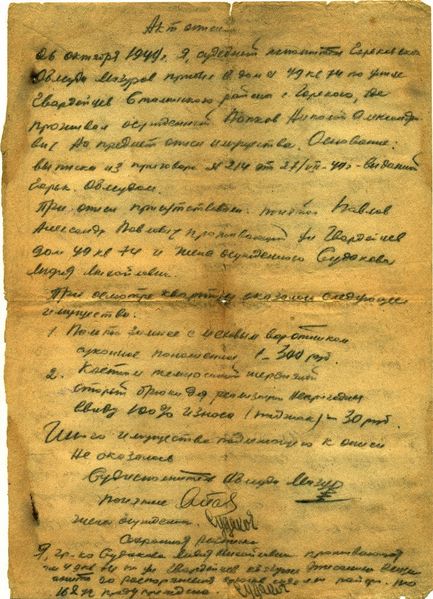 Акт описи
26 октября 1949г. Я, судебный исполнитель Горьковского
Облсуда Мазуров прибыл в дом № 49 кв 74 по улице
Гвардейцев Сталинского района г. Горького, где
проживал осужденный Попков
вич на предмет описи имущества. Основание:
выписка из приговора № 214 от 27/VII-49г. выданной
Горьк. Облсудом.
При описи присутствовали: Павлов
Александр Павлович проживающий ул Гвардейцев
дом 49 кв 74 и жена осужденного Судакова
Мария Михайловна.
При осмотре квартиры оказалось следующее
имущество.
1. Пальто зимнее с меховым воротником
суконное поношенное 1 - 300 руб.
2. Костюм темносиний шерстяной
старый брюки для реализации непригодны
100% износа (пиджак) - 30 руб.
Иного имущества подлежащего к описи
не оказалось
Судисполнитель Облсуда
понятые
жена осужден. Судаков
Сохранная расписка
Я, гр-ка Судакова Мария Михайловна проживающая
д 49 кв 74 по ул Гвардейцев